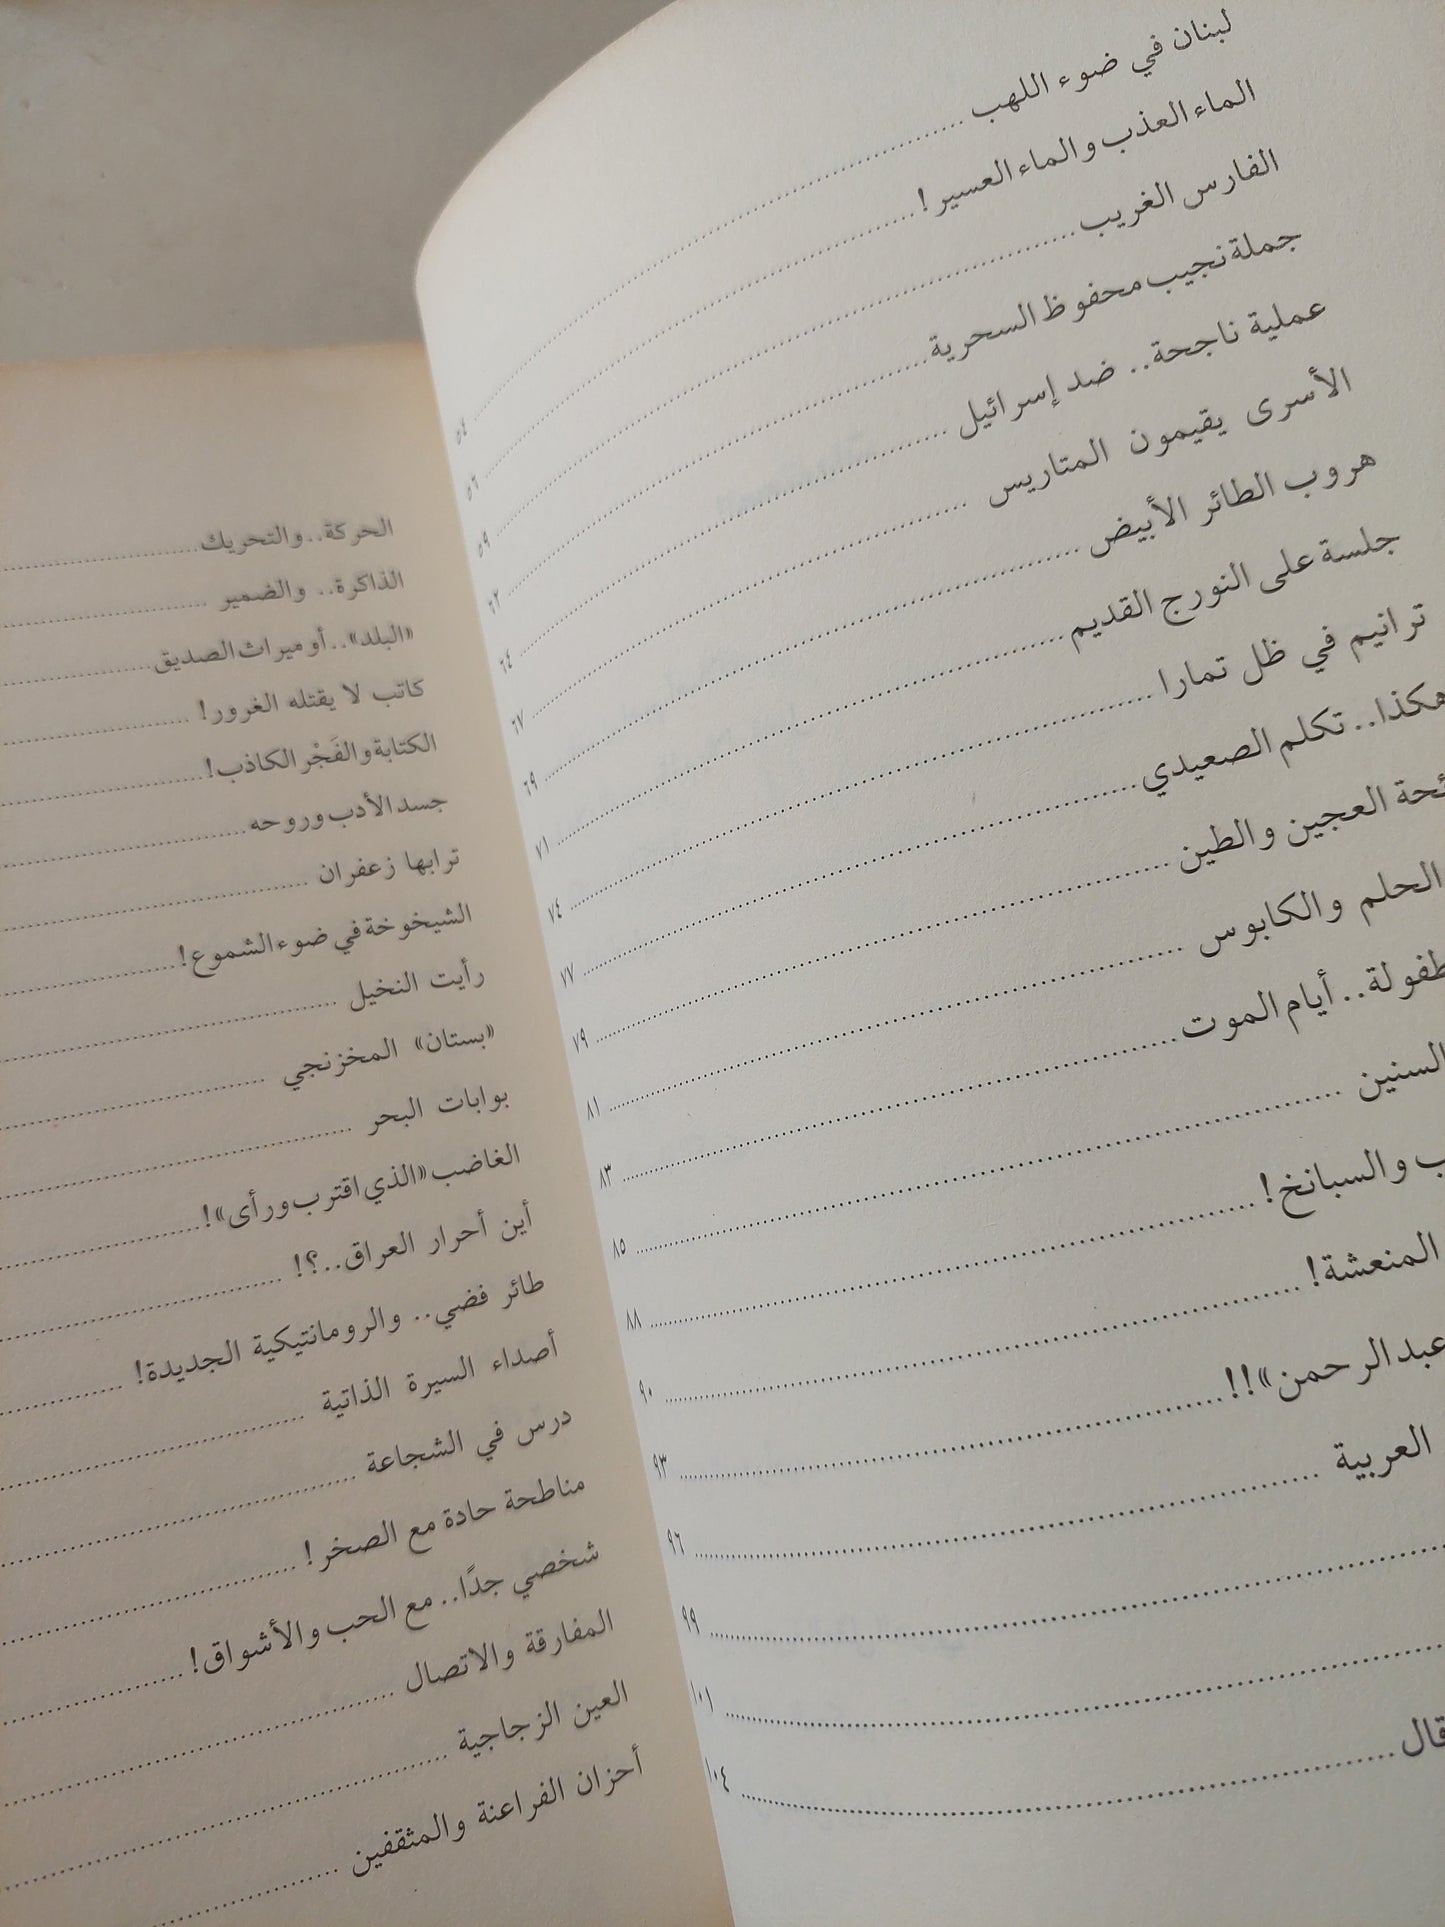 لبنان في ضوء اللهب ٥٤
الماء العذب والماء العسير! ٥٦
الفارس الغريب ٥٩
جملة نجيب محفوظ السحرية ٦٢
عملية ناجحة.. ضد إسرائيل ٦٤
الأسرى يقيمون المتاريس ٦٧
هروب الطائر الأبيض ٦٩
جلسة على النورج القديم ٧١
ترانيم في ظل تمارا ٧٤
هكذا.. تكلم الصعيدي ٧٧
العجين والطين ٧٩
الحلم والكابوس ٨١
أيام الموت ٨٣
السنين ٨٥
والسبانخ! ٨٨
المنعشة! ٩٠
عبد الرحمن»!! ٩٣
العربية ٩٦
٩٩
١٠١
قال ١٠٤
الحركة.. والتحريك
الذاكرة.. والضمير
«البلد».. أو ميراث الصديق
كاتب لا يقتله الغرور!
الكتابة والفَجْر الكاذب!
جسد الأدب وروحه
ترابها زعفران
الشيخوخة في ضوء الشموع!
رأيت النخيل
«بستان» المخزنجي
بوابات البحر
الغاضب «الذي اقترب ورأى»!
أين أحرار العراق..؟!
طائر فضي.. والرومانتيكية الجديدة!
أصداء السيرة الذاتية
درس في الشجاعة
مناطحة حادة مع الصخر!
شخصي جدًا.. مع الحب والأشواق!
المفارقة والاتصال
العين الزجاجية
أحزان الفراعنة والمثقفين